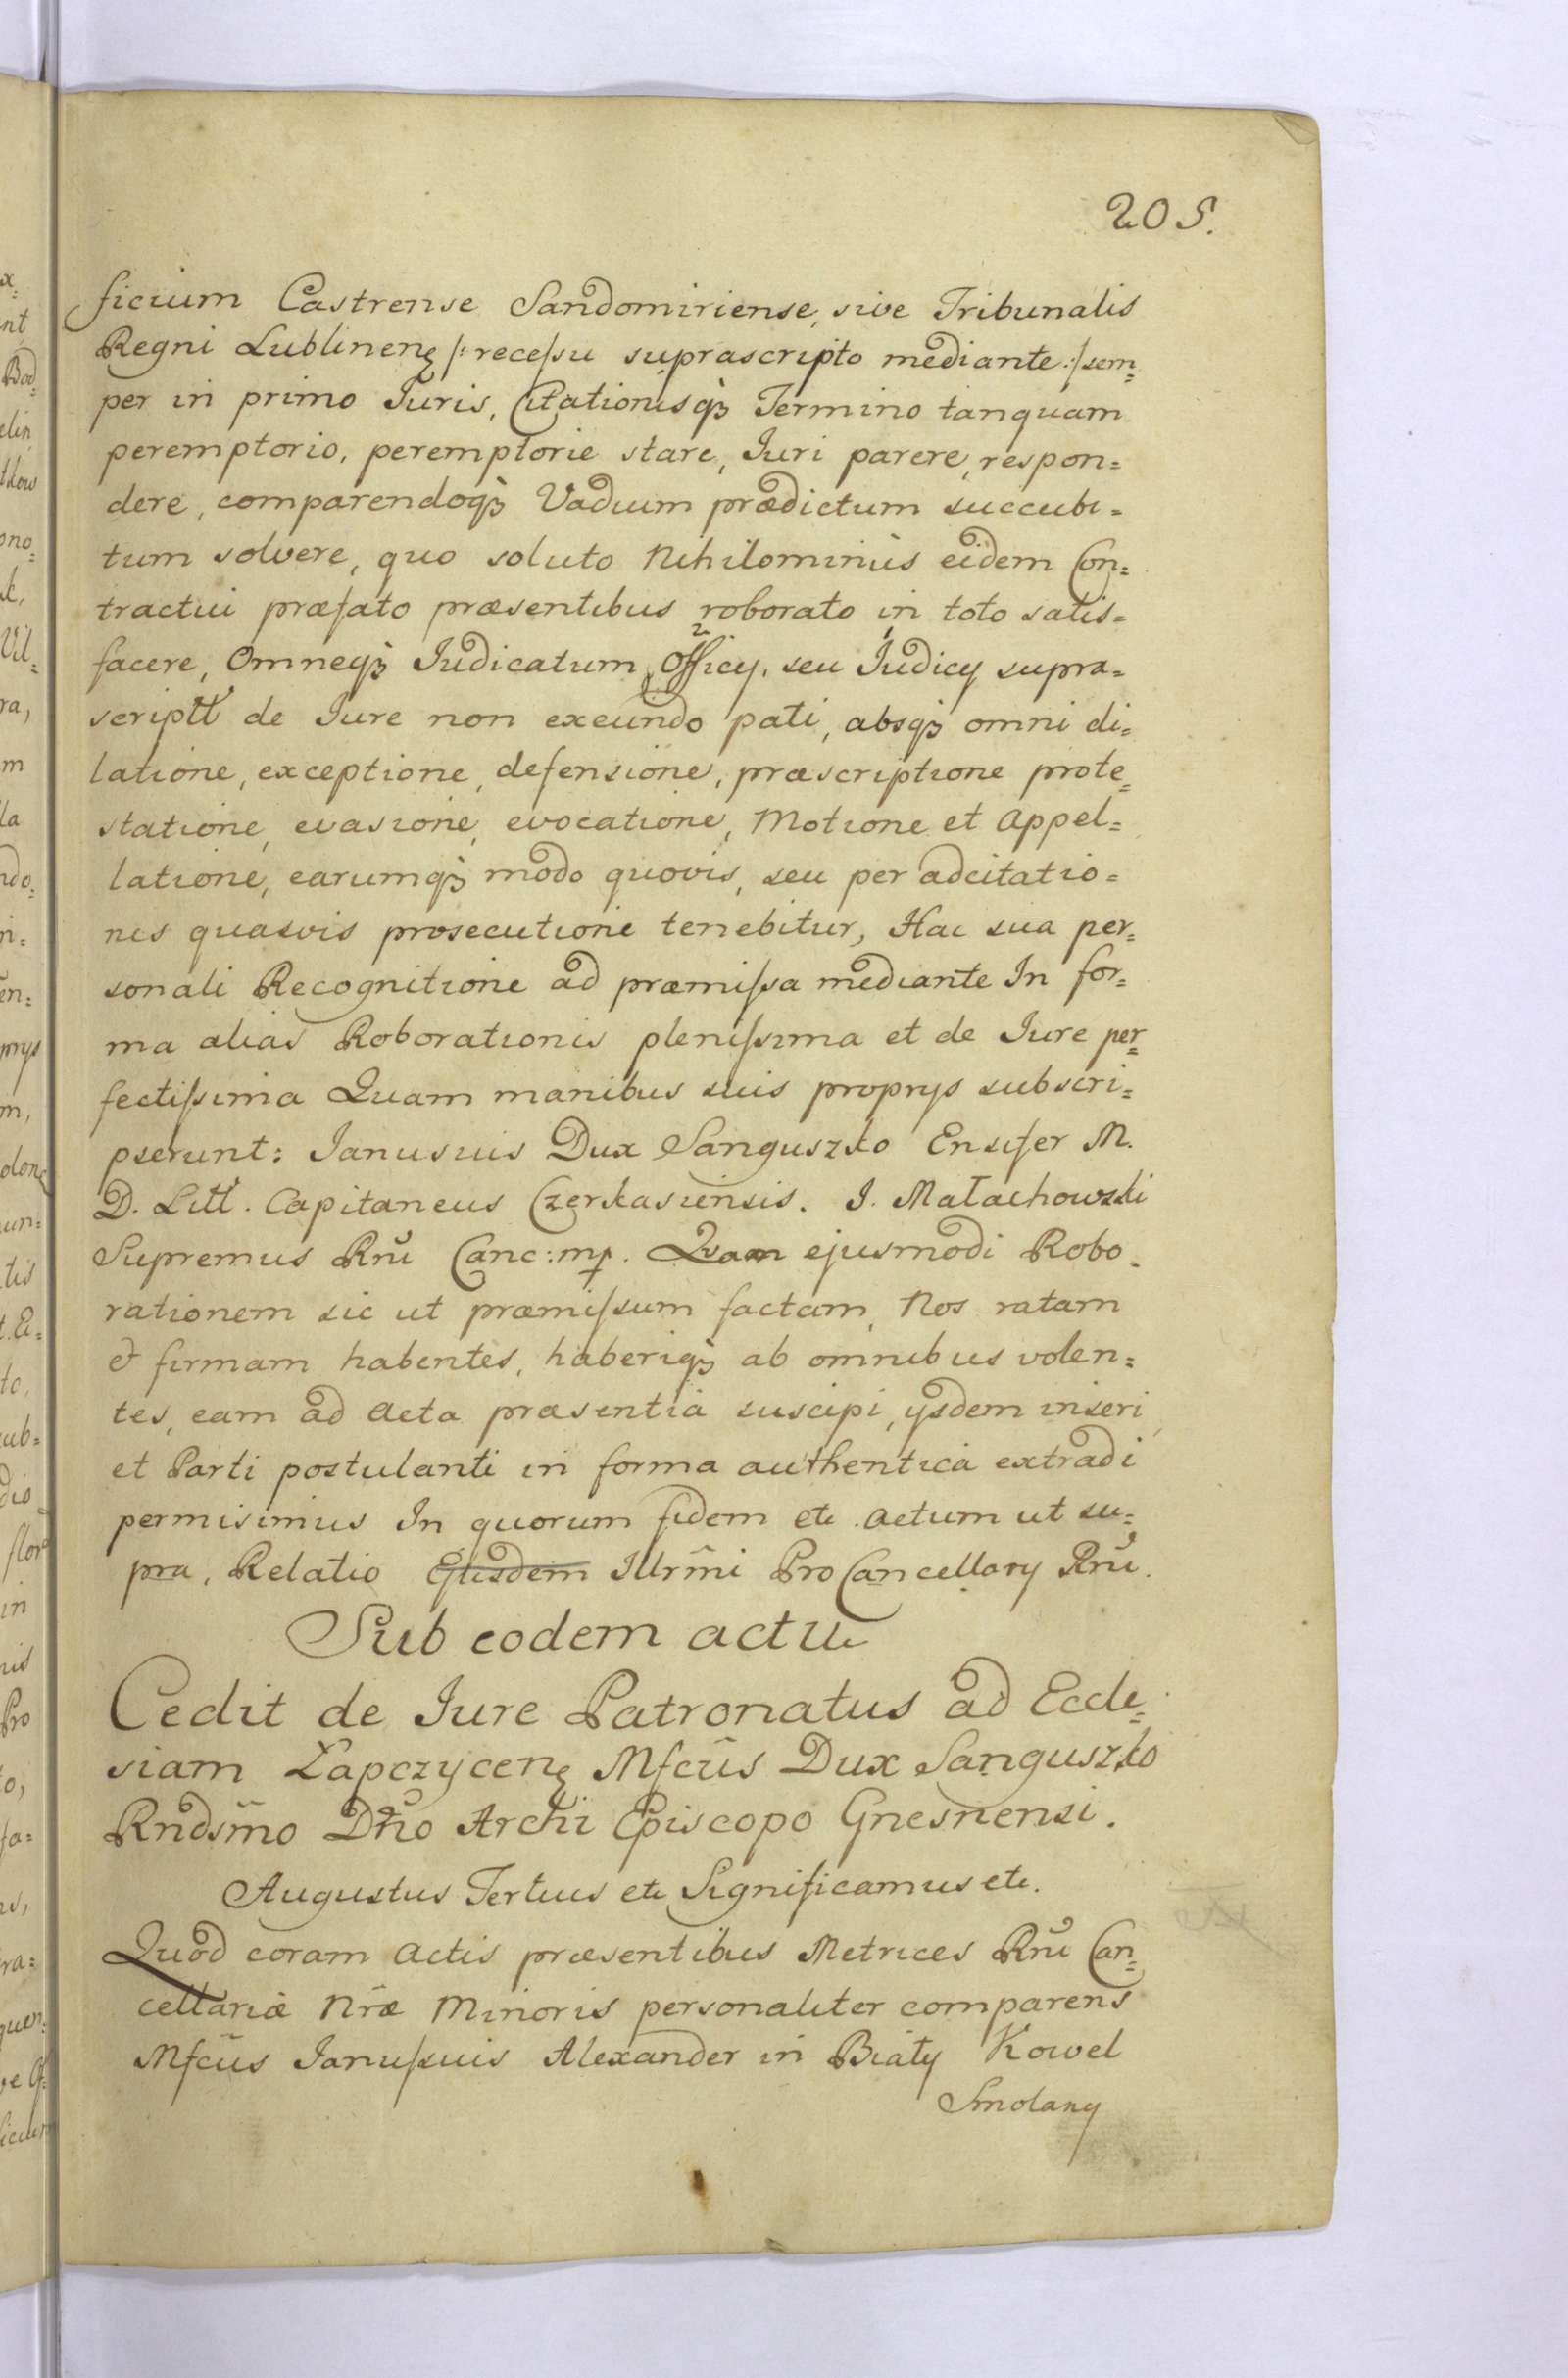 205.
ficium Castrense Sandomiriense, sive Tribunalis
Regni Lublinenę /: recessu suprascripto mediante :/ sem=
per in primo Iuris, Citationisqꝫ Termino tanquam
peremptorio, peremptorie stare, Iuri parere, respon=
dere, comparendoqꝫ Vadium prædictum succubi=
tum solvere, quo soluto Nihilominus eidem Con=
tractui præfato præsentibus roborato in toto satis=
facere, Omneqꝫ Iudicatum Officy, seu Iudicy supra=
scriptt de Iure non exeundo pati, absqꝫ omni di=
latione, exceptione, defensione, præscriptione prote=
statione, evasione, evocatione, Motione et Appel=
latione, earumqꝫ modo quovis, seu per adcitatio=
nes quasvis prosecutione tenebitur, Hac sua per=
sonali Recognitione ad præmissa mediante In for=
ma alias Roborationis plenissima et de Iure per=
fectissima Quam manibus suis proprys subscri=
pserunt: Ianusius Dux Sanguszko Ensifer M.
D. Litt. Capitaneus Czerkasiensis. J. Małachowski
Supremus Rnī Canc: mp. Quam ejusmodi Robo=
rationem sic ut præmissum factam, Nos ratam
& firmam habentes, haberiqꝫ ab omnibus volen=
tes, eam ad Acta præsentia suscipi, ysdem inseri
et Parti postulanti in forma authentica extradi
permisimus In quorum fidem etc. Actum ut su=
pra, Relatio Ejusdem Illrm̃i ProCancellary Rnī.
Sub eodem actu
Cedit de Iure Patronatus ad Eccle=
siam Łapczycenę Mfcus Dux Sanguszko
Rndsm̃o Dño Archi Episcopo Gnesnensi.
Augustus Tertius etc Significamus etc.
Quod coram Actis præsentibus Metrices Rnī Can=
cellariæ Nr̃æ Minoris personaliter comparens
Mfcus Ianussius Alexander in Biały Kowel
Smolany